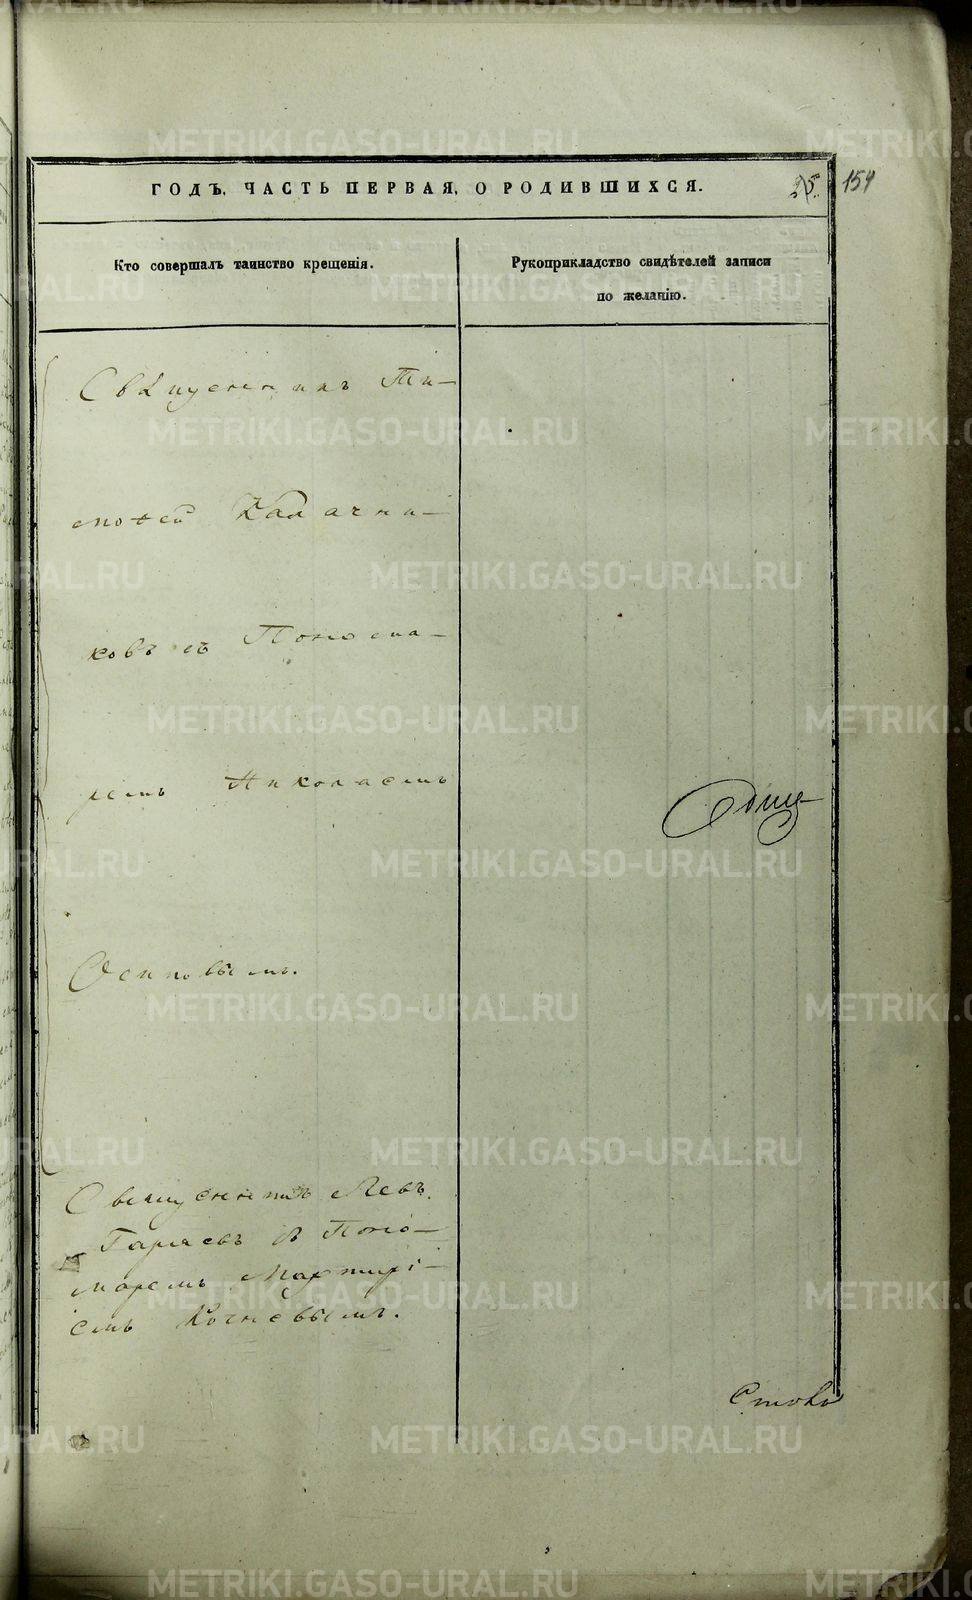 ГОДЪ, ЧАСТЬ ПЕРВАЯ, О РОДИВШИХСЯ.
25. 154
Кто совершалъ таинство крещенія.
Рукоприкладство свидѣтелей записи
по желанію.
Свящусенникъ Ти-
моѳей Калачни-
ковъ съ Понома-
ремъ Николаемъ
Осиповымъ.
Священникъ Левъ
Гаряевъ съ Поно-
маремъ Мартирі-
емъ Кочневымъ.
METRIKI.GASO-URAL.RU